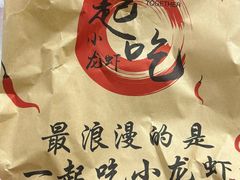 TOGETHER
一起吃
小龙虾
最浪漫的是
一起吃小龙虾